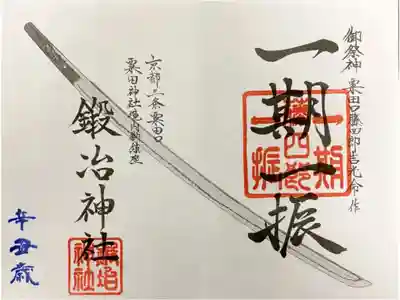 御祭神 粟田口藤四郎吉光命 作
一期一振
一期
藤四郎
一振
京都三条粟田口
粟田神社境内鎮座
鍛冶神社
鍛冶
神社
辛丑歳